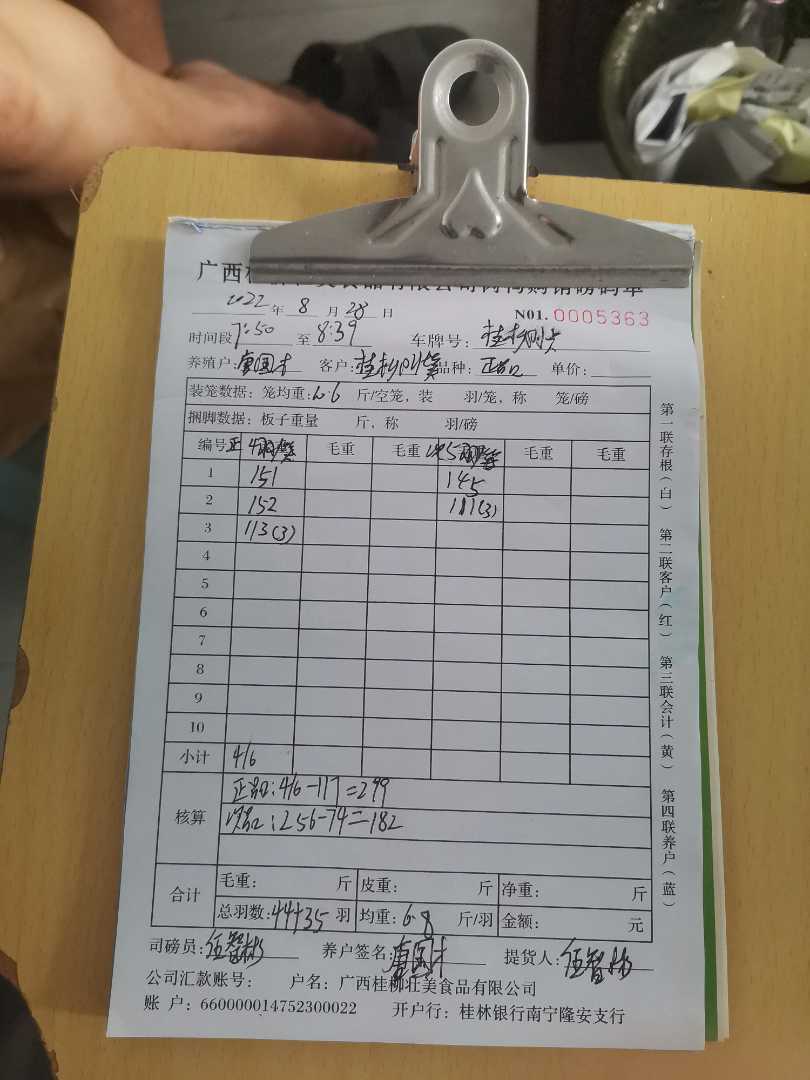 2022 年 8 月 28 日 N01. 0005363
时间段 7:50 至 8:39 车牌号:
养殖户: 唐国才 客户: 品种: 正品 单价:
装笼数据: 笼均重: 6.6 斤/空笼, 装 羽/笼, 称 笼/磅
捆脚数据: 板子重量 斤, 称 羽/磅
编号 正 毛重 毛重 次 毛重 毛重
1 151 145
2 152 111(3)
3 113(3)
4
5
6
7
8
9
10
小计 416
核算 正品: 416-117=299
次品: 256-74=182
合计 毛重: 斤 皮重: 斤 净重: 斤
总羽数: 44+35 羽 均重: 6.8 斤/羽 金额: 元
司磅员: 伍智彬 养户签名: 唐国才 提货人: 伍智彬
公司汇款账号: 户名: 广西桂柳壮美食品有限公司
账 户: 660000014752300022 开户行: 桂林银行南宁隆安支行
第一联存根(白) 第二联客户(红) 第三联会计(黄) 第四联养户(蓝)